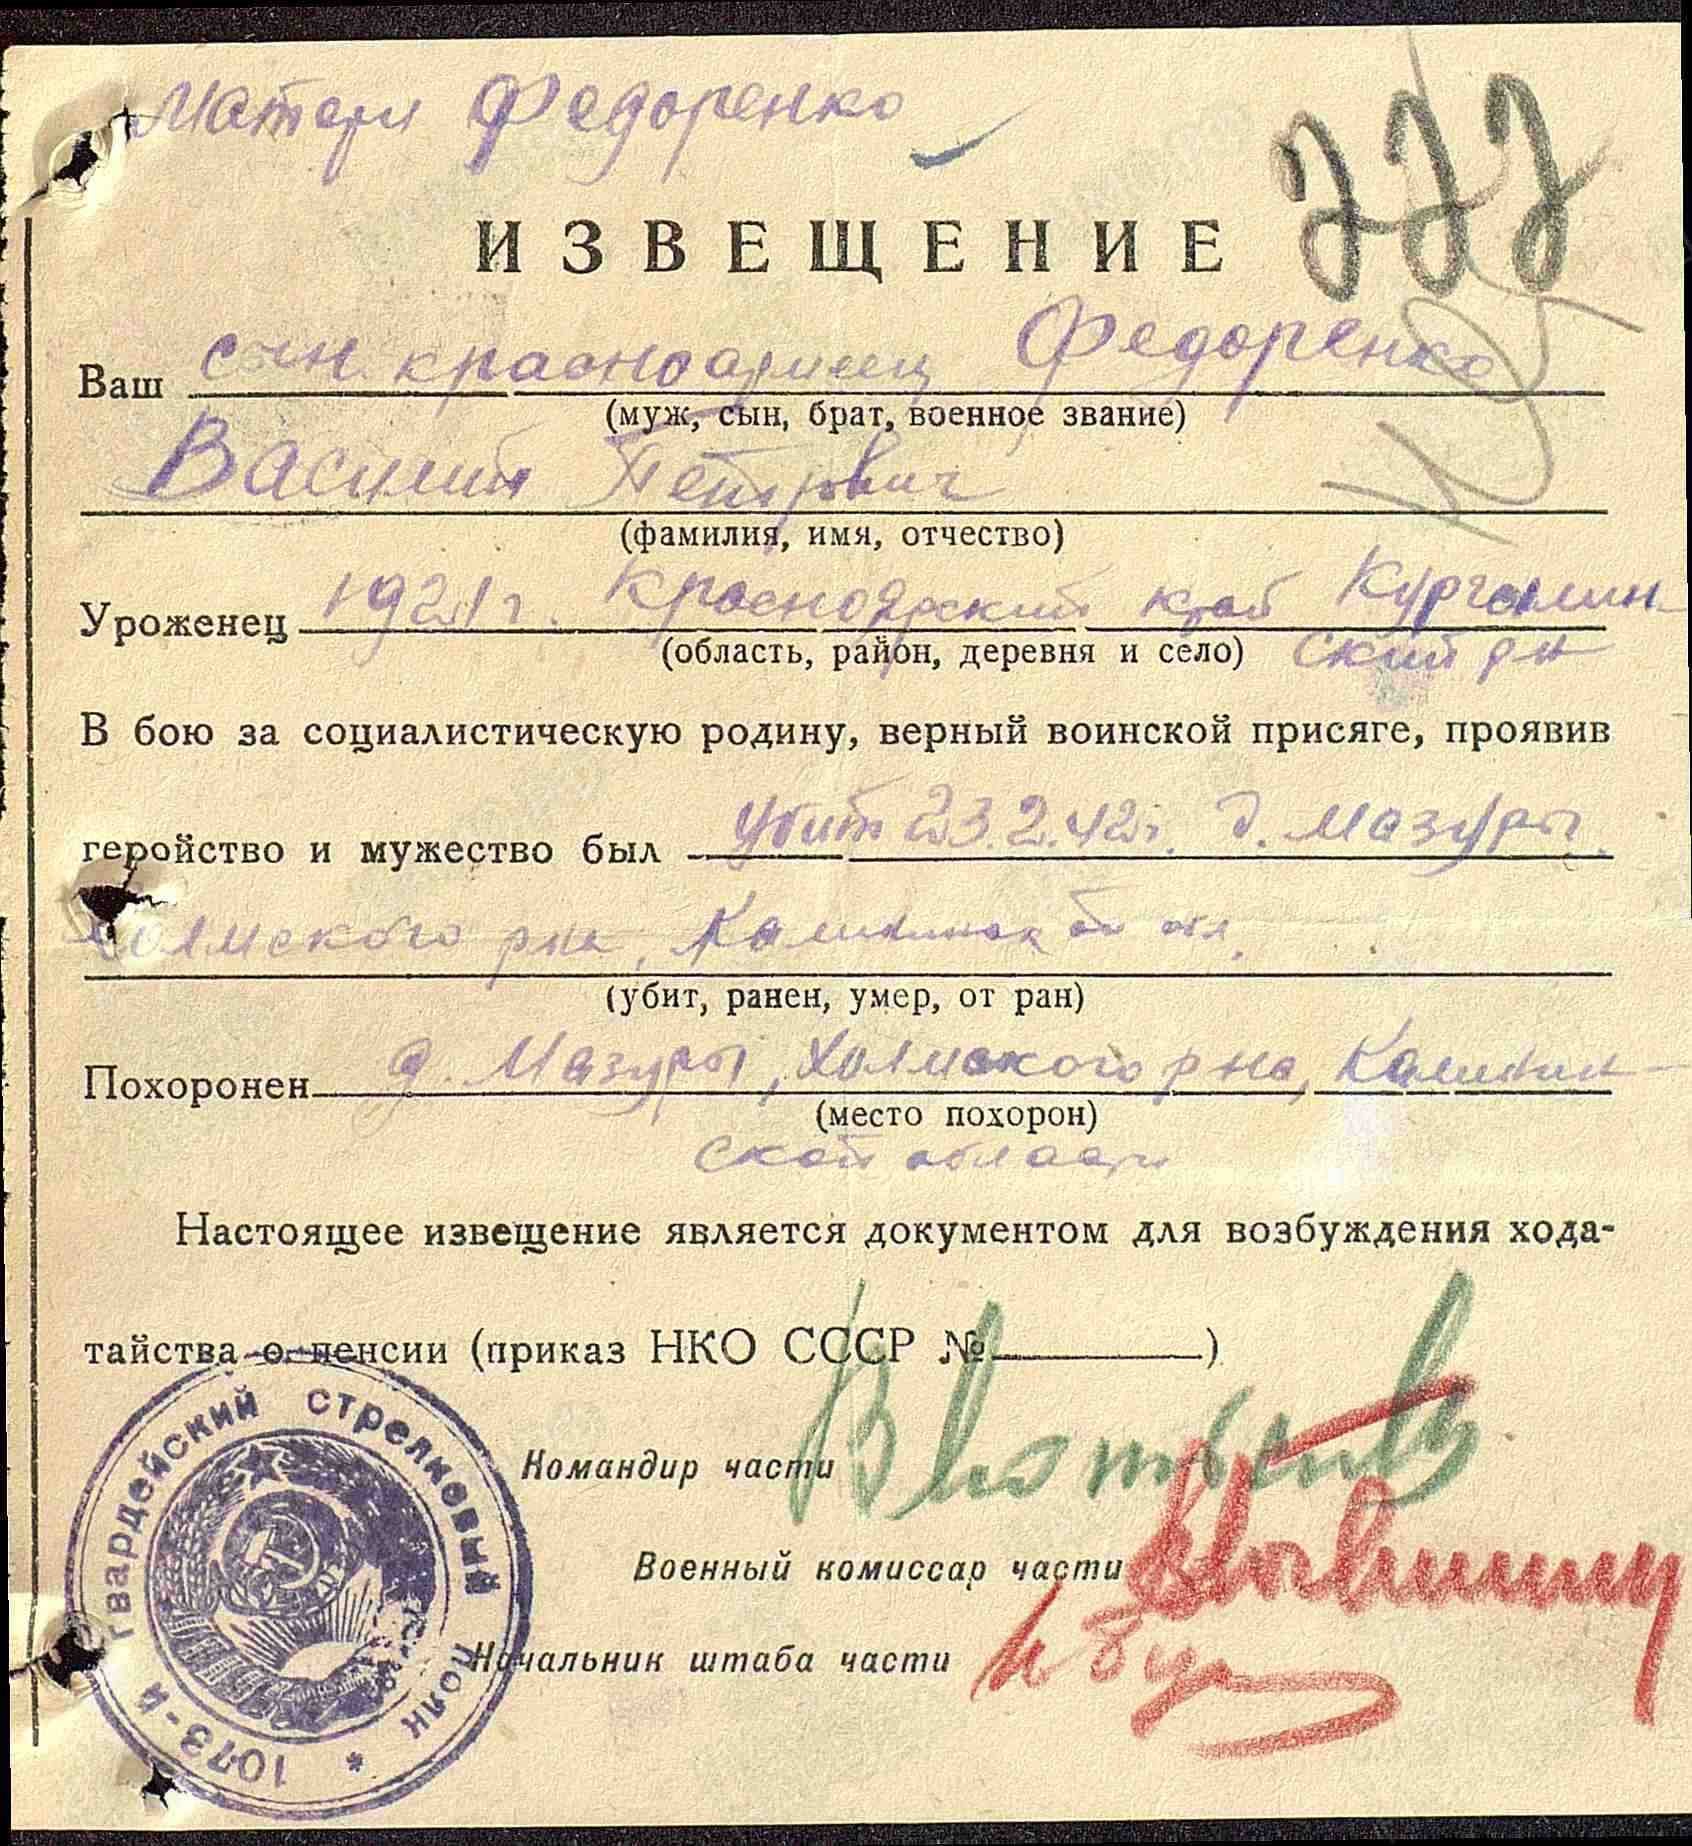 Матери Федоренко
777
ИЗВЕЩЕНИЕ
Ваш сын красноармеец Федоренко
(муж, сын, брат, военное звание)
Василий Петрович
(фамилия, имя, отчество)
Уроженец 1921 г. Краснодарский край Кургалин-
(область, район, деревня и село) ский р-н
В бою за социалистическую родину, верный воинской присяге, проявив
геройство и мужество был убит 23.2.42 г. д. Мазуры.
Холмского р-на, Калининской обл.
(убит, ранен, умер, от ран)
Похоронен д. Мазуры, Холмского р-на, Калинин-
(место похорон)
ской области
Настоящее извещение является документом для возбуждения хода-
тайства о пенсии (приказ НКО СССР №)
Командир части
Военный комиссар части
Начальник штаба части
1073-й Гвардейский стрелковый полк *